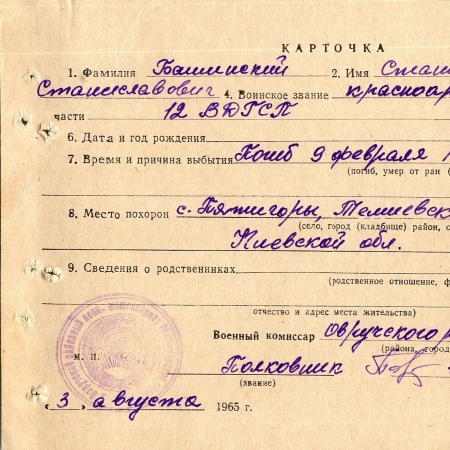 КАРТОЧКА
1. Фамилия Башинский 2. Имя Стан
Станиславович 4. Воинское звание красноар
части 12 ВДГСП
6. Дата и год рождения
7. Время и причина выбытия Погиб 9 февраля 1
(погиб, умер от ран (
8. Место похорон с. Пятигоры, Темиевск
(село, город (кладбище) район, о
Киевской обл.
9. Сведения о родственниках
(родственное отношение, ф
отчество и адрес места жительства)
Военный комиссар Овручского р
(района, город
М. П. Полковник
(звание)
„3„ августа 1965 г.